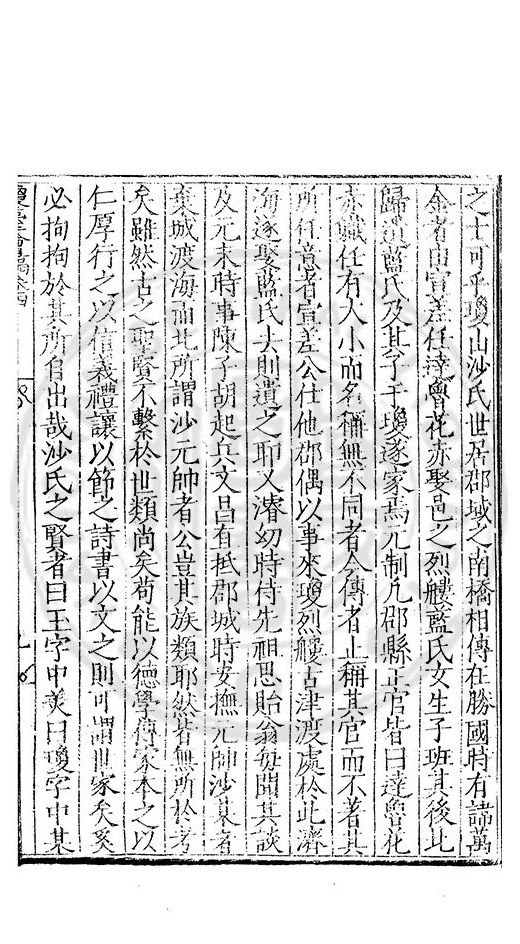 之士可乎瓊山沙氏世居郡城之南橋相傳在勝國時有諱萬
金者由宣差任達魯花赤娶邑之烈樓藍氏女生子班其後北
歸遺藍氏及其子于瓊遂家焉元制凡郡縣正官皆曰達魯花
赤職任有大小而名稱無不同者今傳者止稱其官而不著其
所任意者宣差公仕他郡偶以事來瓊烈樓古津渡處於此濟
海遂娶藍氏去則遺之耶又濬幼時侍先祖思貽翁每聞其談
及元末時事陳子胡起兵文昌直抵郡城時安撫元帥沙某者
棄城渡海而北所謂沙元帥者公豈其族類耶然者無所於考
矣雖然古之聖賢不繫於世類尚矣苟能以德學傳家本之以
仁厚行之以信義禮讓以節之詩書以文之則可謂世家矣奚
必拘拘於其所自出哉沙氏之賢者曰玉字中美曰瓊字中某